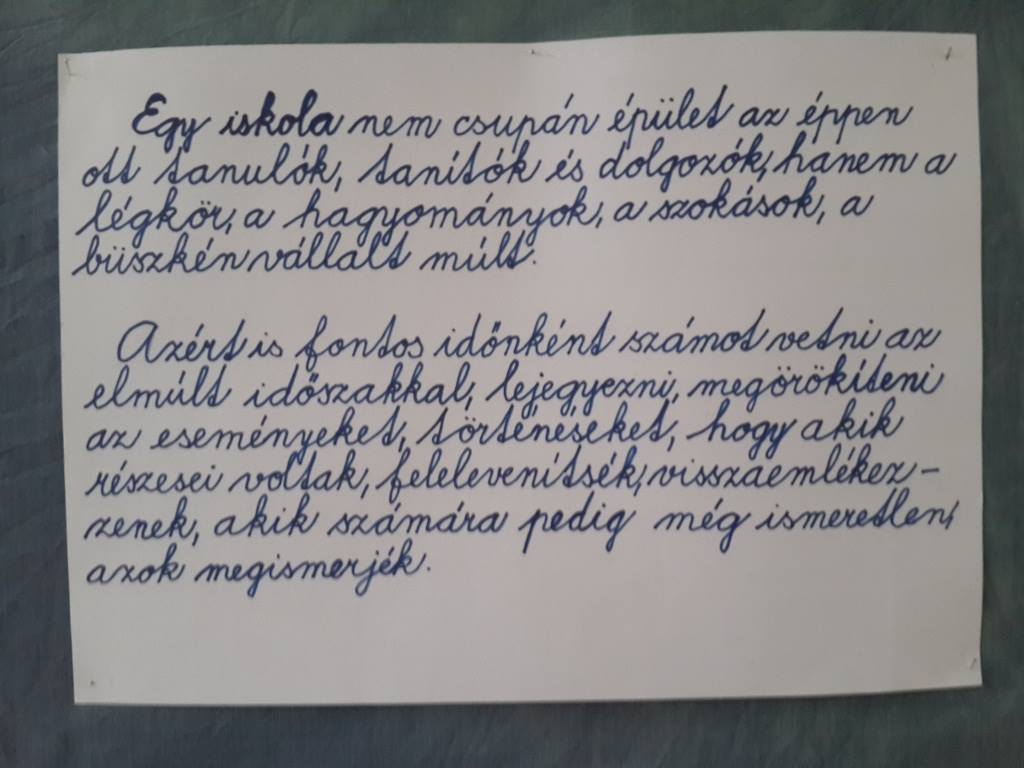 Egy iskola nem csupán épület az éppen
ott tanulók, tanítók és dolgozók, hanem a
légkör, a hagyományok, a szokások, a
büszkén vállalt múlt.
Azért is fontos időnként számot vetni az
elmúlt időszakkal, lejegyezni, megörökíteni
az eseményeket, történéseket, hogy akik
részesei voltak, felelevenítsék, visszaemlékez-
zenek, akik számára pedig még ismeretlen,
azok megismerjék.